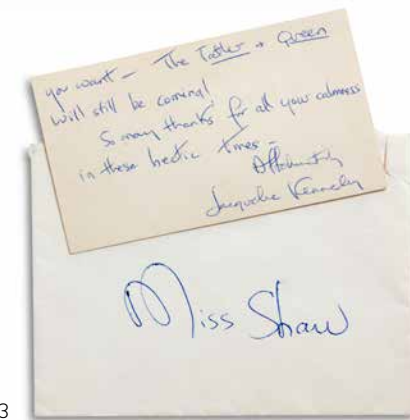 you want – The Tatler + Queen
will still be coming!
So many thanks for all your calmness
in these hectic times –
Affectionately
Jacqueline Kennedy
Miss Shaw
3